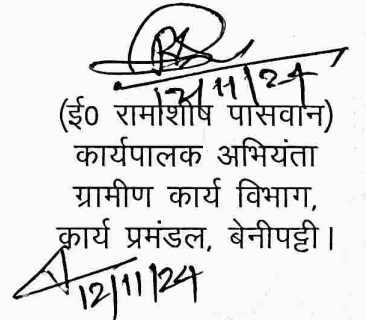 12/11/24
(ई० रामाशीष पासवान)
कार्यपालक अभियंता
ग्रामीण कार्य विभाग,
कार्य प्रमंडल, बेनीपट्टी।
12/11/24